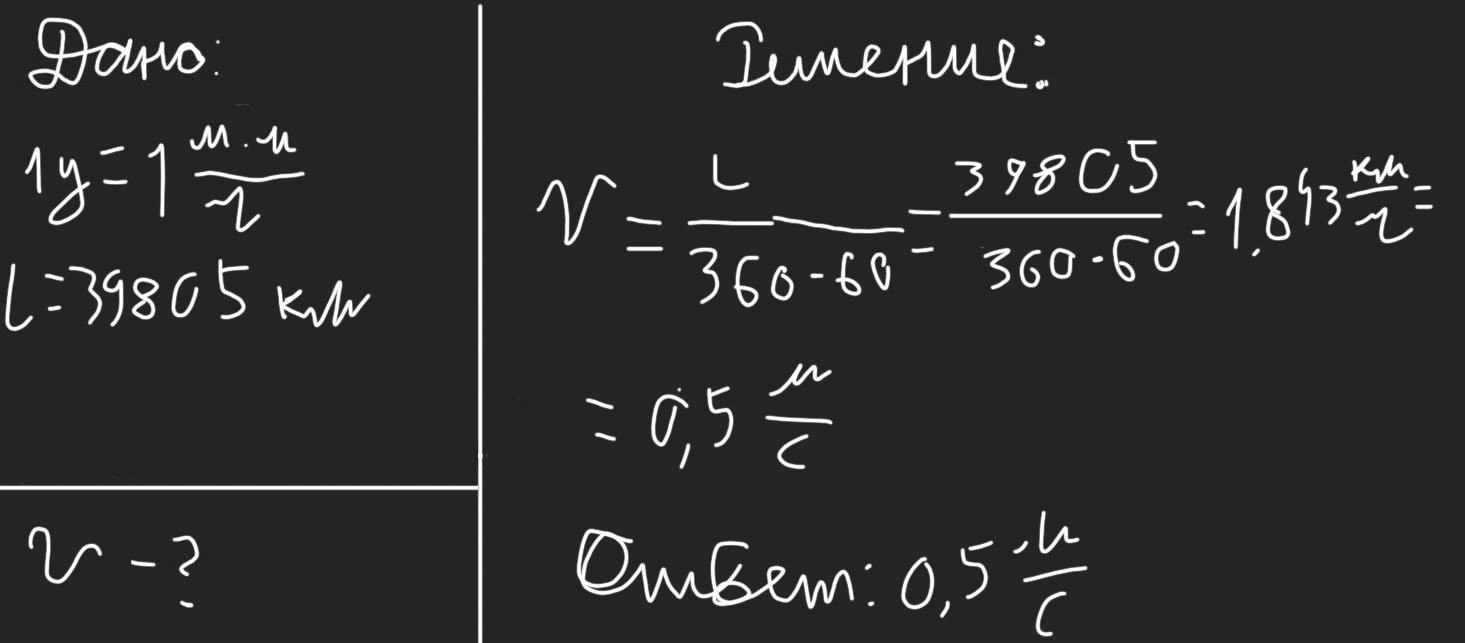 Дано:
1у = 1 м.м/ч
L = 39805 км
V - ?
Решение:
V = L/(360·60) = 39805/(360·60) = 1.843 км/ч =
= 0,5 м/с
Ответ: 0,5 м/с